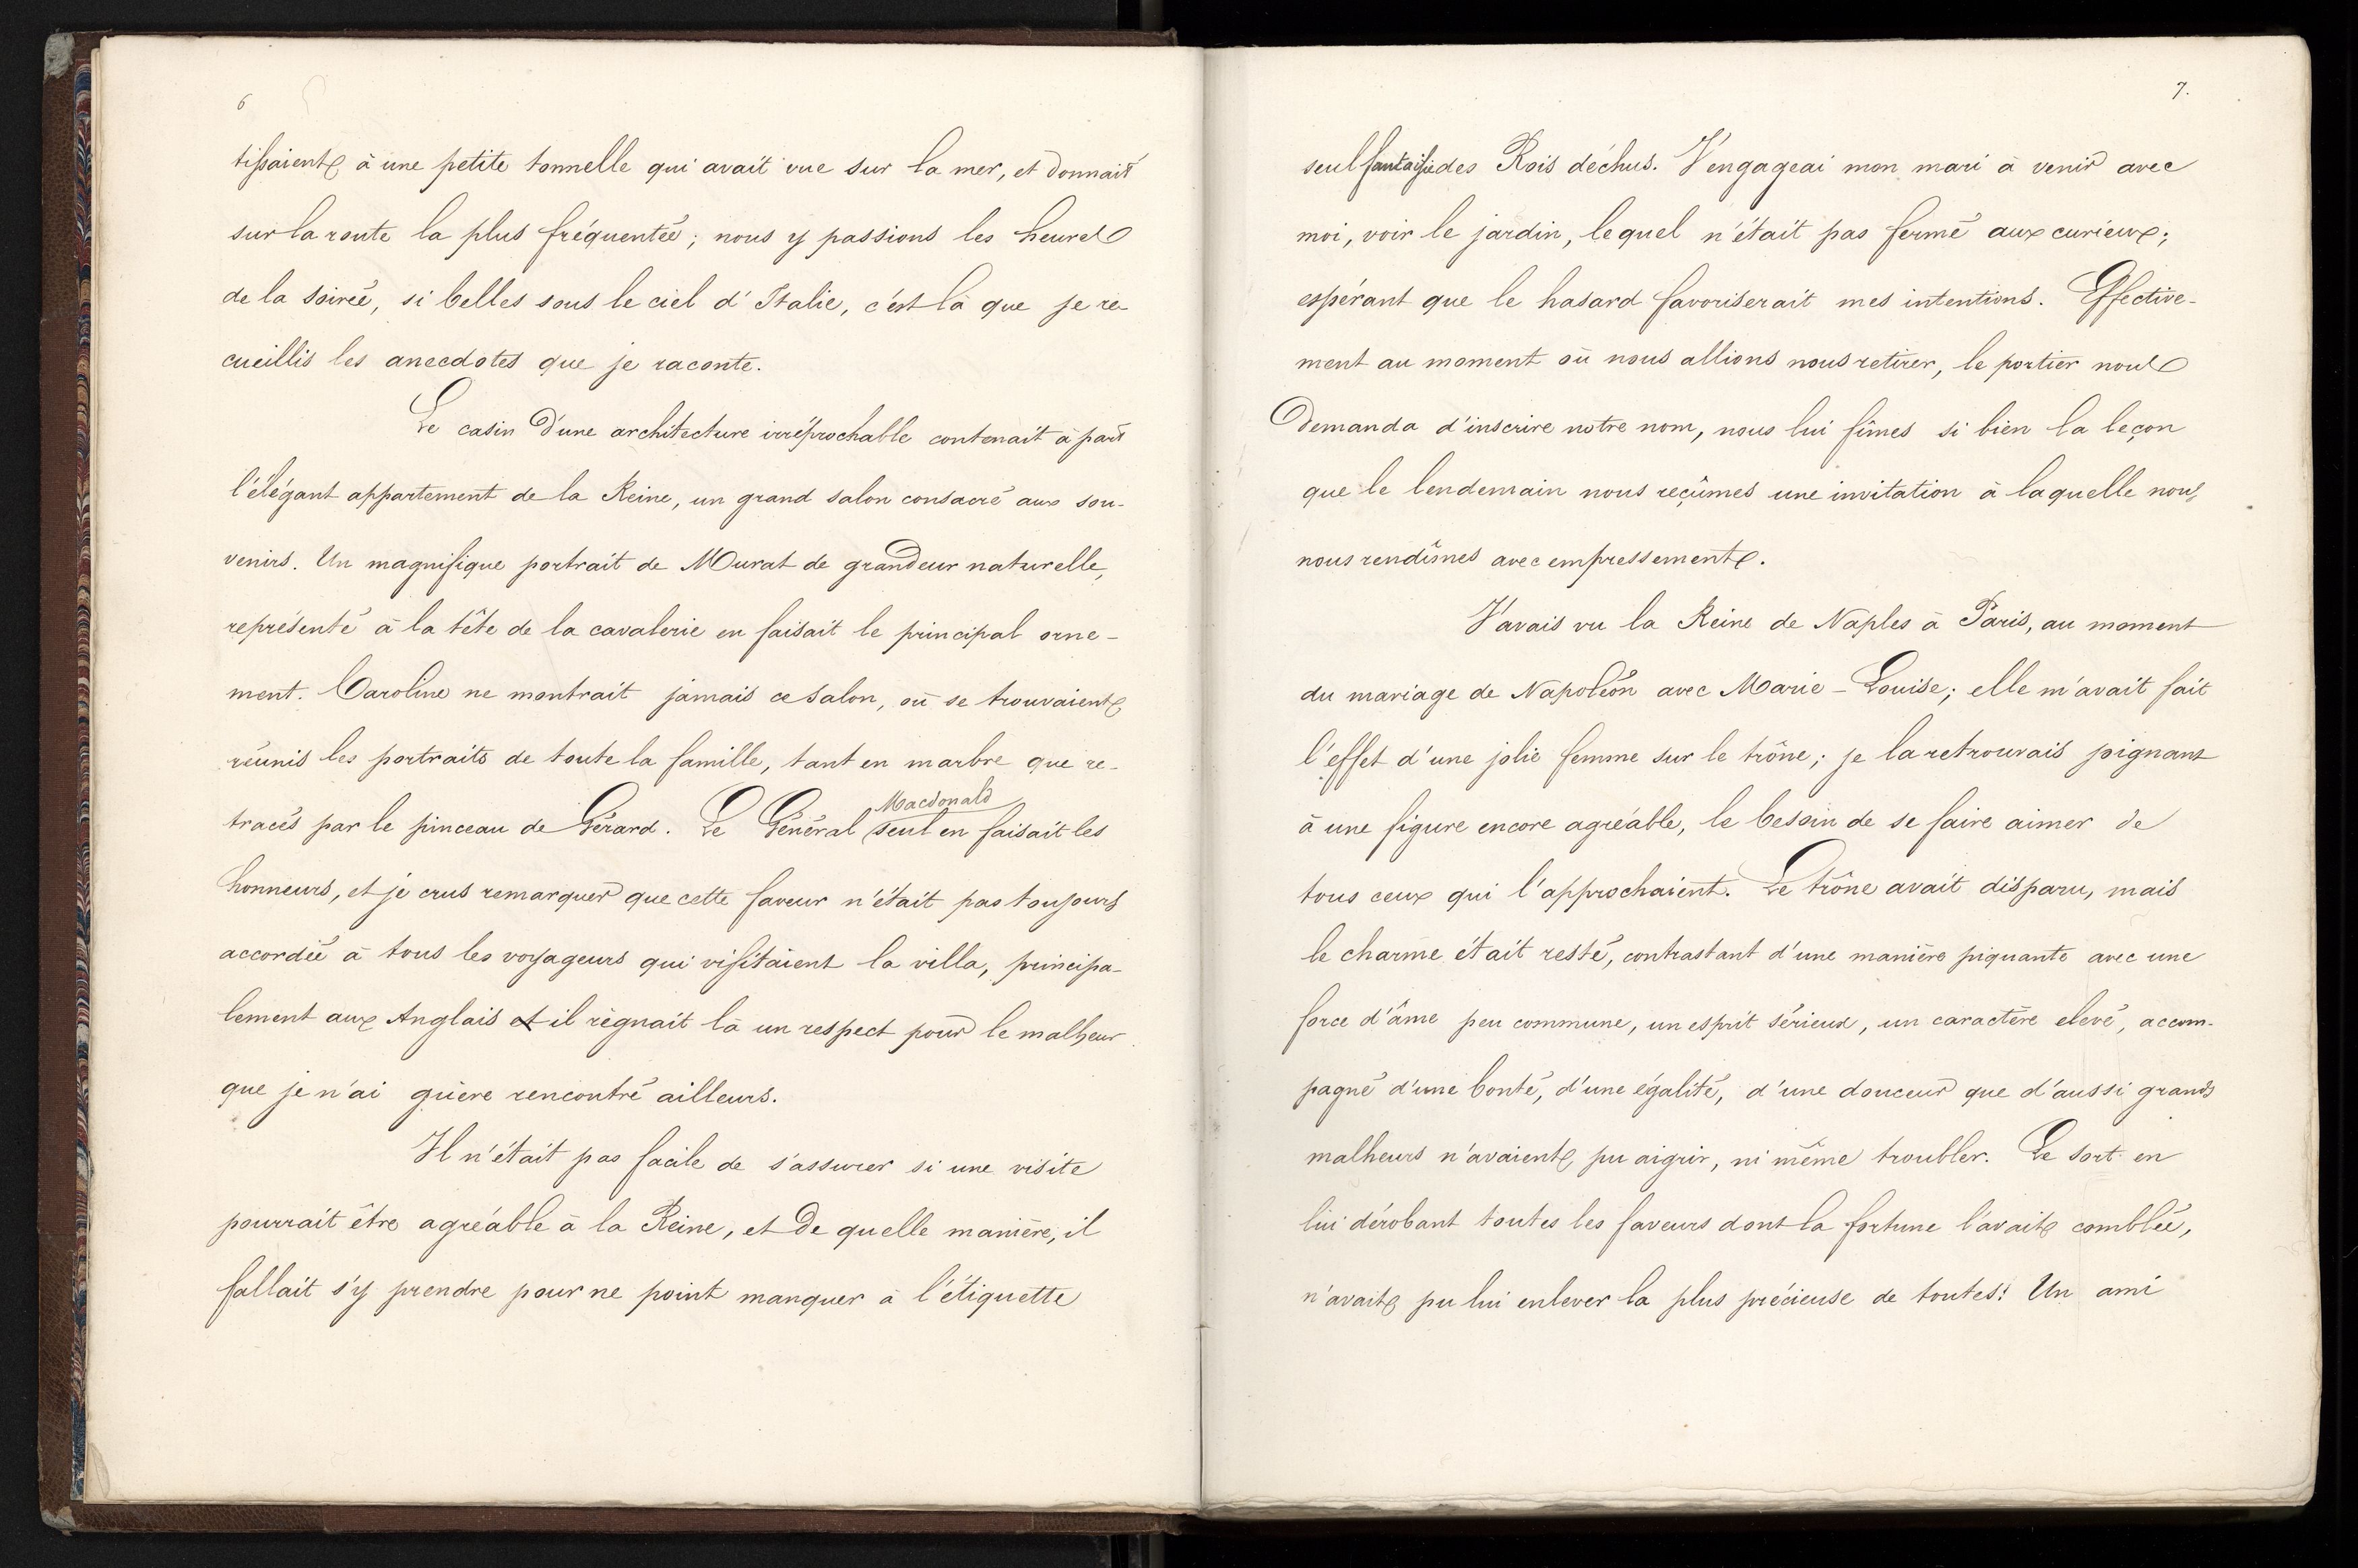 6
tissaient à une petite tonnelle qui avait vue sur la mer, et donnait
sur la route la plus fréquentée; nous y passions les heures
de la soirée, si belles sous le ciel d'Italie, c'est là que je re-
cueillis les anecdotes que je raconte.
Le casin d'une architecture irréprochable contenait à part
l'élégant appartement de la Reine, un grand salon consacré aux sou-
venirs. Un magnifique portrait de Murat de grandeur naturelle,
représenté à la tête de la cavalerie en faisait le principal orne-
ment. Caroline ne montrait jamais ce salon, où se trouvaient
réunis les portraits de toute la famille, tant en marbre que re-
Macdonald
tracés par le pinceau de Gérard. Le Général seul en faisait les
honneurs, et je crus remarquer que cette faveur n'était pas toujours
accordée à tous les voyageurs qui visitaient la villa, principa-
lement aux Anglais et il règnait là un respect pour le malheur
que je n'ai guère rencontré ailleurs.
Il n'était pas facile de s'assurer si une visite
pourrait être agréable à la Reine, et de quelle manière, il
fallait s'y prendre pour ne point manquer à l'étiquette
7.
seul fantaisie des Rois déchus. J'engageai mon mari à venir avec
moi, voir le jardin, lequel n'était pas fermé aux curieux;
espérant que le hasard favoriserait mes intentions. Effective-
ment au moment où nous allions nous retirer, le portier nous
demanda d'inscrire notre nom, nous lui fîmes si bien la leçon
que le lendemain nous reçûmes une invitation à laquelle nous
nous rendîmes avec empressement.
J'avais vu la Reine de Naples à Paris, au moment
du mariage de Napoléon avec Marie-Louise; elle m'avait fait
l'effet d'une jolie femme sur le trône; je la retrouvais joignant
à une figure encore agréable, le besoin de se faire aimer de
tous ceux qui l'approchaient. Le trône avait disparu, mais
le charme était resté, contrastant d'une manière piquante avec une
force d'âme peu commune, un esprit sérieux, un caractère elevé, accom-
pagné d'une bonté, d'une égalité, d'une douceur que d'aussi grands
malheurs n'avaient pu aigrir, ni même troubler. Le sort en
lui dérobant toutes les faveurs dont la fortune l'avait comblée,
n'avait pu lui enlever la plus précieuse de toutes! Un ami